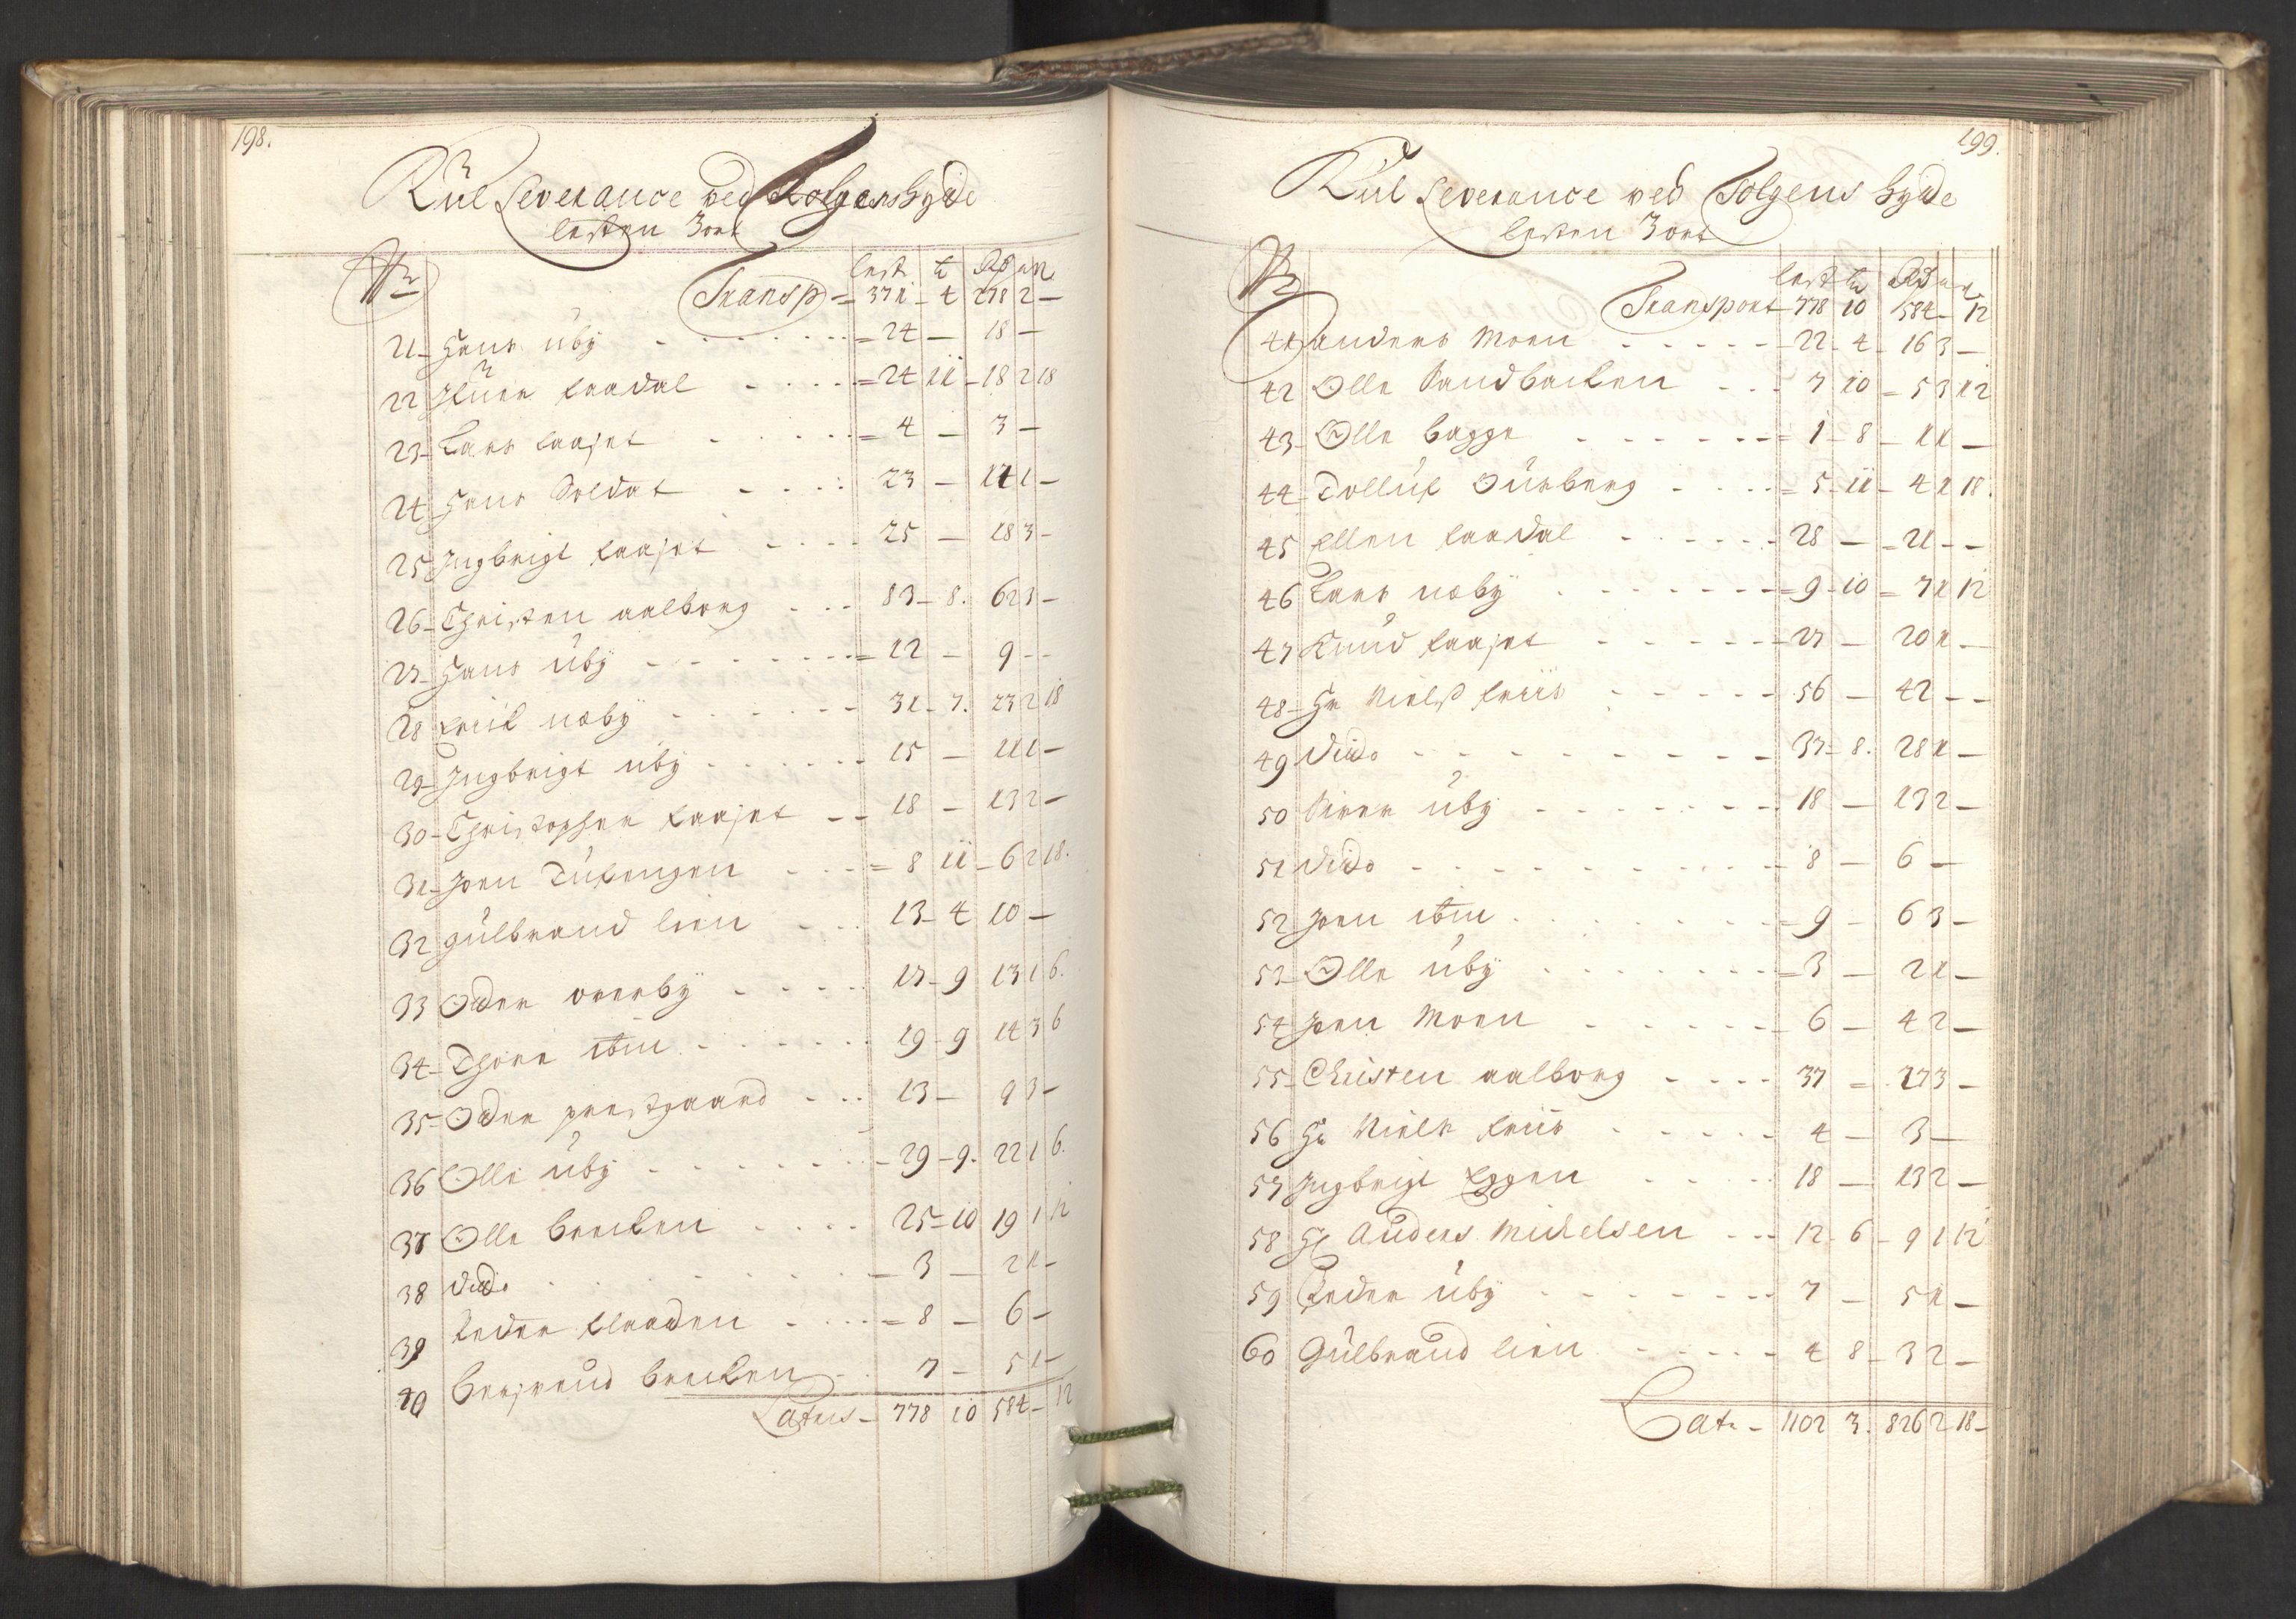 198.
Kul Leverance ved Tolgens hyde
lesten 3 ort
Nr lest t Rd ort
Transp = 371 - 4 278 2 -
21 - Hans Ubÿ = 24 - 18 -
22 Jfuer Laadal = 24 11 - 18 2 18
23 - Lars Laaset = 4 - 3 -
24 - Hans Soldat 23 - 17 1 -
25 Ingbrigt Laaset 25 - 18 3 -
26 - Christen aalborg 83 - 8. 62 3 -
27 - Hans Ubÿ = 12 - 9 - -
28 Eriik nøbÿ 31 - 7. 23 2 18
29 - Ingbrigt Ubÿ 15 - 11 1 -
30 - Christopher Laaset 18 - 13 2 -
31 - Joen Tufengen = 8 11 - 6 2 18.
32 Gulbrand lien 13 - 4 10 -
33 Oder overbÿ 17 - 9 13 1 6.
34 - Thore ibm 19 - 9 14 3 6
35 - Oder prestgaard 13 - 9 3 -
36 Olle Ubÿ 29 - 9. 22 1 6.
37 Olle brecken 25 = 10 19 1 12
38 dido 3 - 2 1 -
39 Peder Elvaden = 8 - 6 -
40 brecken 7 - 5 1 -
Latus - 778 10 584 - 12
199.
Kul Leverance ved Tolgens hyde
lesten 3 ort
Nr lest t Rd ort
Transport 778 10 584 - 12
41 anders Moen 22 - 4 - 16 3 -
42 Olle Sandbacken 7 10 - 5 3 12
43 - Olle bagge = 1 - 8 - 1 1 -
44 - Tolluf Durberg = 5 - 11 - 4 1 18.
45 Ellen Laadal 28 - - 21 - -
46 Lars nøbÿ = 9 - 10 = 7 1 12
47 Knud Laaset 27 - 20 1 -
48 - Hr Nielß Friis 56 - 42 - -
49 dido 37 - 8. 28 1 -
50 Siver Ubÿ 18 - 13 2 -
51 dido 8 - 6 -
52 Joen ibm 9 - 6 3 -
53 - Olle Ubÿ = 3 - 2 1 -
54 Joen Moen 6 - 4 2 -
55 - Christen aalborg 37 = 27 3 -
56 Hr Niels Friis 4 - 3 -
57 Ingbrigt Eggen 18 - 13 2 -
58 Hr Anders Mickelsen 12 - 6 - 9 1 12
59 Peder Ubÿ 7 - 5 1 -
60 Gulbrand lien 4 8 - 3 2 -
Lat. - 1102 3. 826 2 18 -